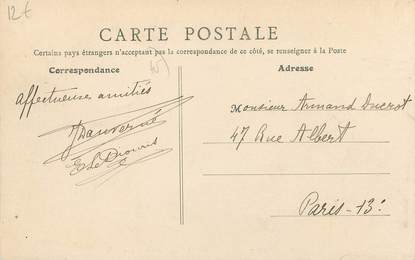 12€
CARTE POSTALE
Certains pays étrangers n'acceptant pas la correspondance de ce côté, se renseigner à la Poste
45)
Correspondance
Adresse
Affectueuse amitiés
Monsieur Armand Ducrot
47 Rue Albert
Paris-13e